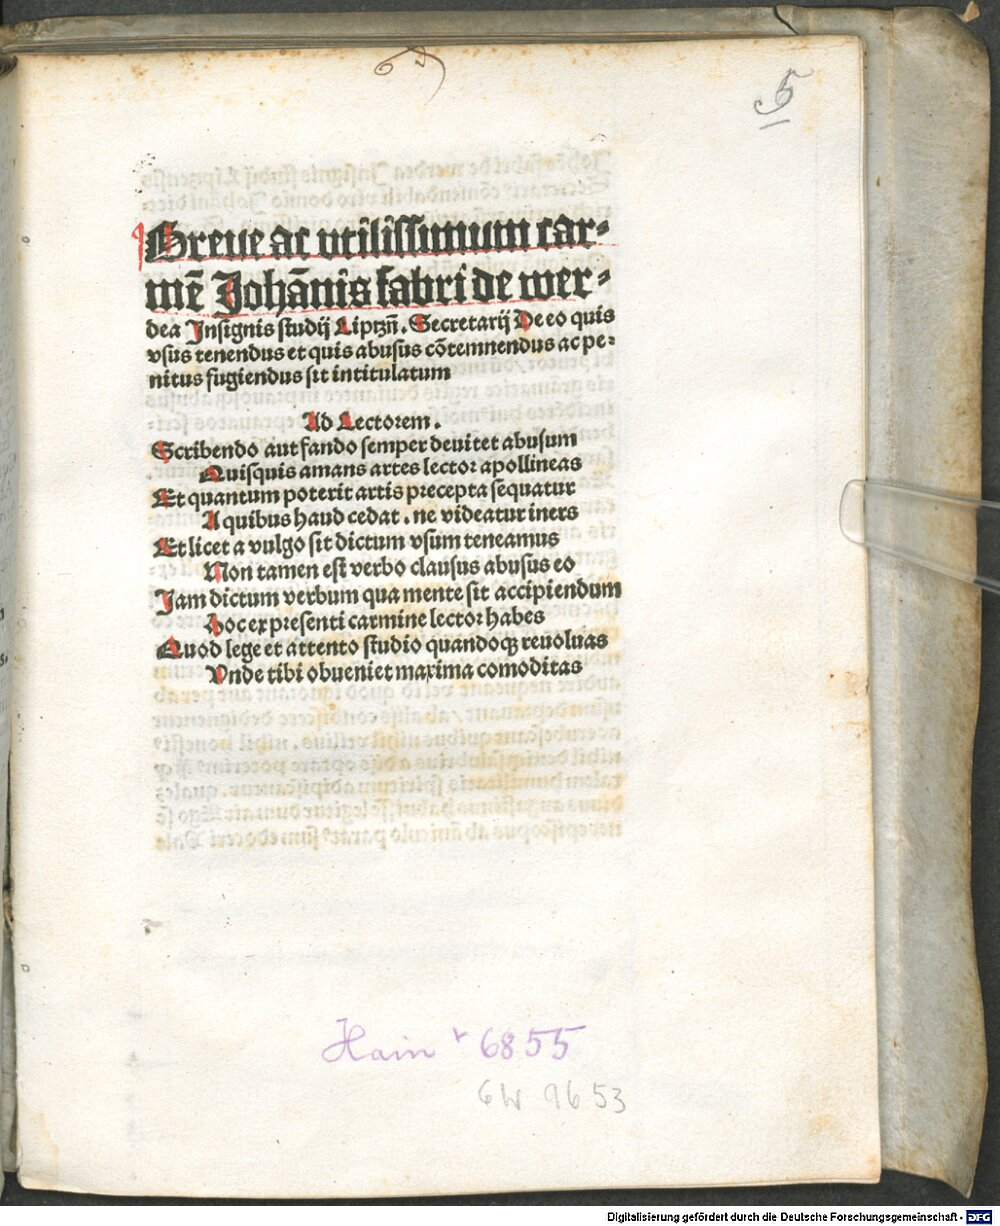 5
Breue ac vtilissimum car⸗
mē Johānis fabri de wer⸗
dea Jnsignis studij Liptzn̄. Secretarij De eo quis
vsus tenendus et quis abusus cōtemnendus ac pe⸗
nitus fugiendus sit intitulatum
Ad Lectorem.
Scribendo aut fando semper deuitet abusum
Quisquis amans artes lector apollineas
Et quantum poterit artis precepta sequatur
A quibus haud cedat. ne videatur iners
Et licet a vulgo sit dictum vsum teneamus
Non tamen est verbo clausus abusus eo
Jam dictum verbum qua mente sit accipiendum
Hoc ex presenti carmine lector habes
Quod lege et attento studio quandoqꝫ reuoluas
Vnde tibi obueniet maxima comoditas
Hain + 6855
GW 9653
Digitalisierung gefördert durch die Deutsche Forschungsgemeinschaft - DFG